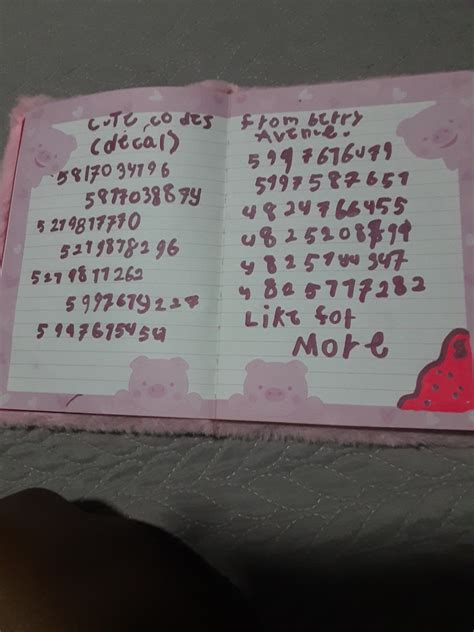 cute codes
(decal)
5817034796
5877038874
5279817770
5219878296
5279877262
5997674228
5997675454
from berry
Avenue.
5997676479
5997587657
4824766455
4825208899
4825744347
4825777282
Like for
More